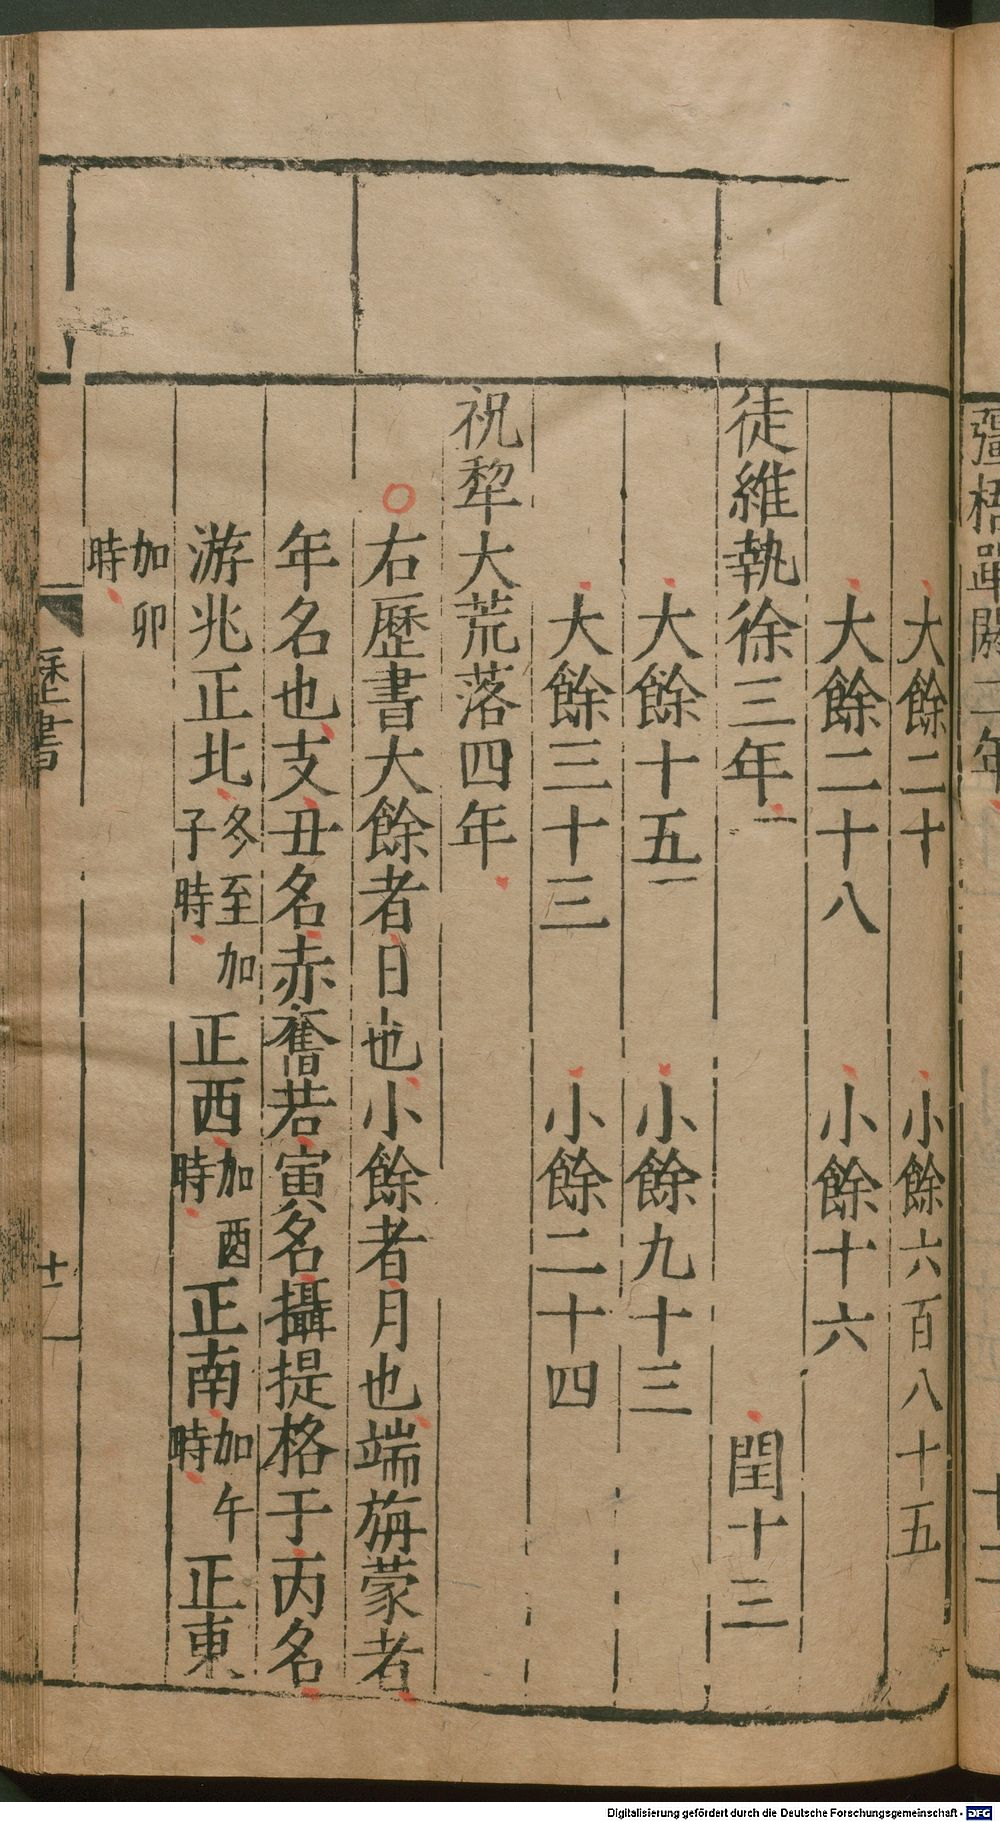 彊梧單閼二年
十二
大餘二十　小餘六百八十五
大餘二十八　小餘十六
徒維執徐三年　閏十三
大餘十五　小餘九十三
大餘三十三　小餘二十四
祝犂大荒落四年
右歷書大餘者日也小餘者月也端旃蒙者
年名也支丑名赤奮若寅名攝提格于丙名
游兆正北冬至加子時正西加酉時正南加午時正東
加卯時
歷書
十二
Digitalisierung gefördert durch die Deutsche Forschungsgemeinschaft - DFG